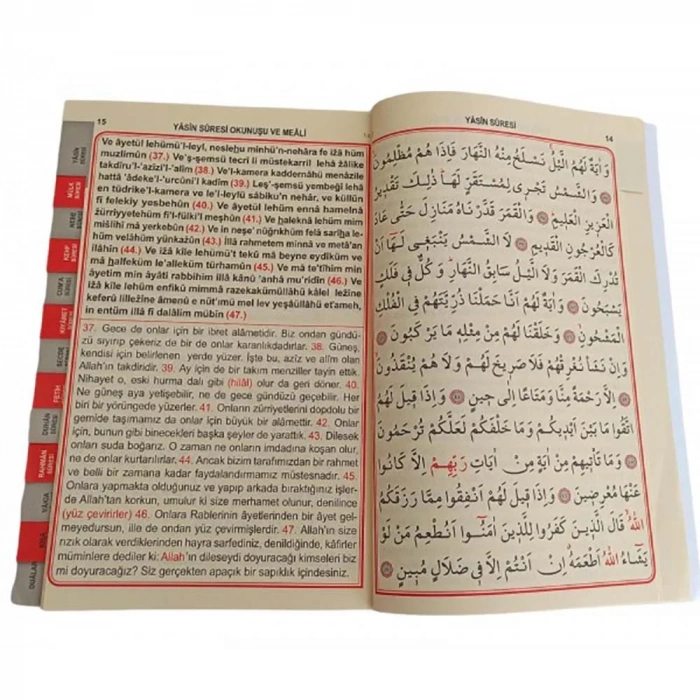 15
YÂSÎN SÛRESİ OKUNUŞU VE MEÂLİ
Ve âyetül lehümü'l-leyl, neslehu minhü'n-nehâra fe iżâ hüm
muzlimûn (37.) Ve'ş-şemsü tecrî li müstekarril lehâ żâlike
takdîru'l-'azîzi'l-'alîm (38.) Ve'l-kamera kaddernâhü menâzile
hattâ 'âdeke'l-'urcûni'l kadîm (39.) Leş'-şemsü yembeğî lehâ
en tüdrike'l-kamera ve le'l-leylü sâbiku'n nehâr, ve küllün
fî felekiy yesbehûn (40.) Ve âyetül lehüm ennâ hamelnâ
żürriyyetehüm fi'l-fülki'l meşhûn (41.) Ve haleknâ lehüm mim
mišlihî mâ yerkebûn (42.) Ve in neşe' nüğrıkhüm felâ sarîha le-
hüm velâhüm yünkażûn (43.) İllâ rahmetem minnâ ve metâ'an
ilâhîn (44.) Ve iżâ kîle lehümü't tekû mâ beyne eydîküm ve
mâ halfeküm le'alleküm türhamûn (45.) Ve mâ te'tîhim min
âyetim min âyâti rabbihim illâ kânû 'anhâ mu'ridîn (46.) Ve
iżâ kîle lehüm enfikû mimmâ razekakümüllâhü kâlel leżîne
keferû lilležîne âmenû e nüt'ımü mel lev yeşâüllâhü et'ameh,
in entüm illâ fî dalâlim mübîn (47.)
37. Gece de onlar için bir ibret alâmetidir. Biz ondan gündü-
zü sıyırıp çekeriz de bir de onlar karanlıkdadırlar. 38. Güneş,
kendisi için belirlenen yerde yüzer. İşte bu, azîz ve alîm olan
Allah'ın takdiridir. 39. Ay için de bir takım menziller tayin ettik.
Nihayet o, eski hurma dalı gibi (hilâl) olur da geri döner. 40.
Ne güneş aya yetişebilir, ne de gece gündüzü geçebilir. Her
biri bir yörüngede yüzerler. 41. Onların zürriyetlerini dopdolu bir
gemide taşımamız da onlar için büyük bir alâmettir. 42. Onlar
için, bunun gibi binecekleri başka şeyler de yarattık. 43. Dilesek
onları suda boğarız. O zaman ne onların imdadına koşan olur,
ne de onlar kurtarılırlar. 44. Ancak bizim tarafımızdan bir rahmet
ve belli bir zamana kadar faydalandırmamız müstesnadır. 45.
Onlara yapmakta olduğunuz ve yapıp arkada bıraktığınız işler-
de Allah'tan korkun, umulur ki size merhamet olunur, denilince
(yüz çevirirler) 46. Onlara Rablerinin âyetlerinden bir âyet gel-
meyedursun, ille de ondan yüz çevirmişlerdir. 47. Allah'ın size
rızık olarak verdiklerinden hayra sarfediniz, denildiğinde, kâfirler
müminlere dediler ki: Allah'ın dileseydi doyuracağı kimseleri biz
mi doyuracağız? Siz gerçekten apaçık bir sapıklık içindesiniz.
YÂSÎN SÛRESİ
MÜLK SÛRESİ
NEBE SÛRESİ
KEHF SÛRESİ
CUM'A SÛRESİ
KIYÂMET SÛRESİ
SECDE
FETİH
DUHÂN SÛRESİ
RAHMÂN SÛRESİ
VÂKIA
DUÂLAR
YÂSÎN SÛRESİ
14
وَاٰيَةٌ لَهُمُ الَّيْلُ نَسْلَخُ مِنْهُ النَّهَارَ فَاِذَا هُمْ مُظْلِمُونَ
وَالشَّمْسُ تَجْرِى لِمُسْتَقَرٍّ لَهَا ذٰلِكَ تَقْدِيرُ
الْعَزِيزِ الْعَلِيمِ وَالْقَمَرَ قَدَّرْنَاهُ مَنَازِلَ حَتّٰى عَادَ
كَالْعُرْجُونِ الْقَدِيمِ لَا الشَّمْسُ يَنْبَغِى لَهَا اَنْ
تُدْرِكَ الْقَمَرَ وَلَا الَّيْلُ سَابِقُ النَّهَارِ وَكُلٌّ فِى فَلَكٍ
يَسْبَحُونَ وَاٰيَةٌ لَهُمْ اَنَّا حَمَلْنَا ذُرِّيَّتَهُمْ فِى الْفُلْكِ
الْمَشْحُونِ وَخَلَقْنَا لَهُمْ مِنْ مِثْلِهِ مَا يَرْكَبُونَ
وَاِنْ نَشَأْ نُغْرِقْهُمْ فَلَا صَرِيخَ لَهُمْ وَلَا هُمْ يُنْقَذُونَ
اِلَّا رَحْمَةً مِنَّا وَمَتَاعًا اِلٰى حِينٍ وَاِذَا قِيلَ لَهُمُ
اتَّقُوا مَا بَيْنَ اَيْدِيكُمْ وَمَا خَلْفَكُمْ لَعَلَّكُمْ تُرْحَمُونَ
وَمَا تَأْتِيهِمْ مِنْ اٰيَةٍ مِنْ اٰيَاتِ رَبِّهِمْ اِلَّا كَانُوا
عَنْهَا مُعْرِضِينَ وَاِذَا قِيلَ لَهُمْ اَنْفِقُوا مِمَّا رَزَقَكُمُ
اللّٰهُ قَالَ الَّذِينَ كَفَرُوا لِلَّذِينَ اٰمَنُوا اَنُطْعِمُ مَنْ لَوْ
يَشَاءُ اللّٰهُ اَطْعَمَهُ اِنْ اَنْتُمْ اِلَّا فِى ضَلَالٍ مُبِينٍ